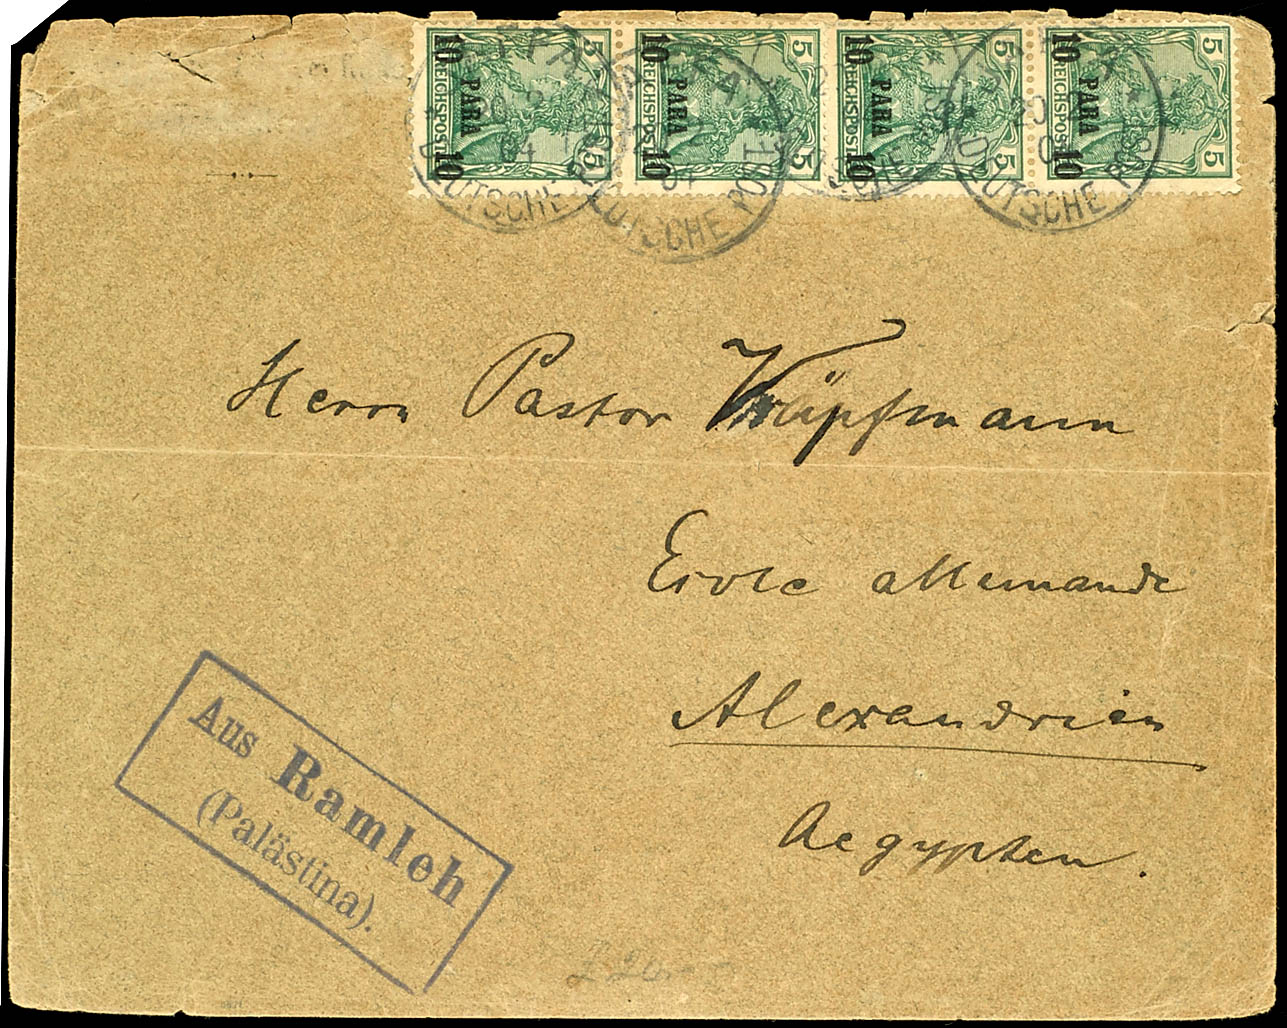 5 10 PARA 10 REICHSPOST 5
5 10 PARA 10 REICHSPOST 5
5 10 PARA 10 REICHSPOST 5
5 10 PARA 10 REICHSPOST 5
JAFFA DEUTSCHE POST
JAFFA DEUTSCHE POST
JAFFA DEUTSCHE POST
Herrn Pastor Küpfmann
Ecole allemande
Alexandrien
Aegypten.
Aus Ramleh
(Palästina).
£ 20.-